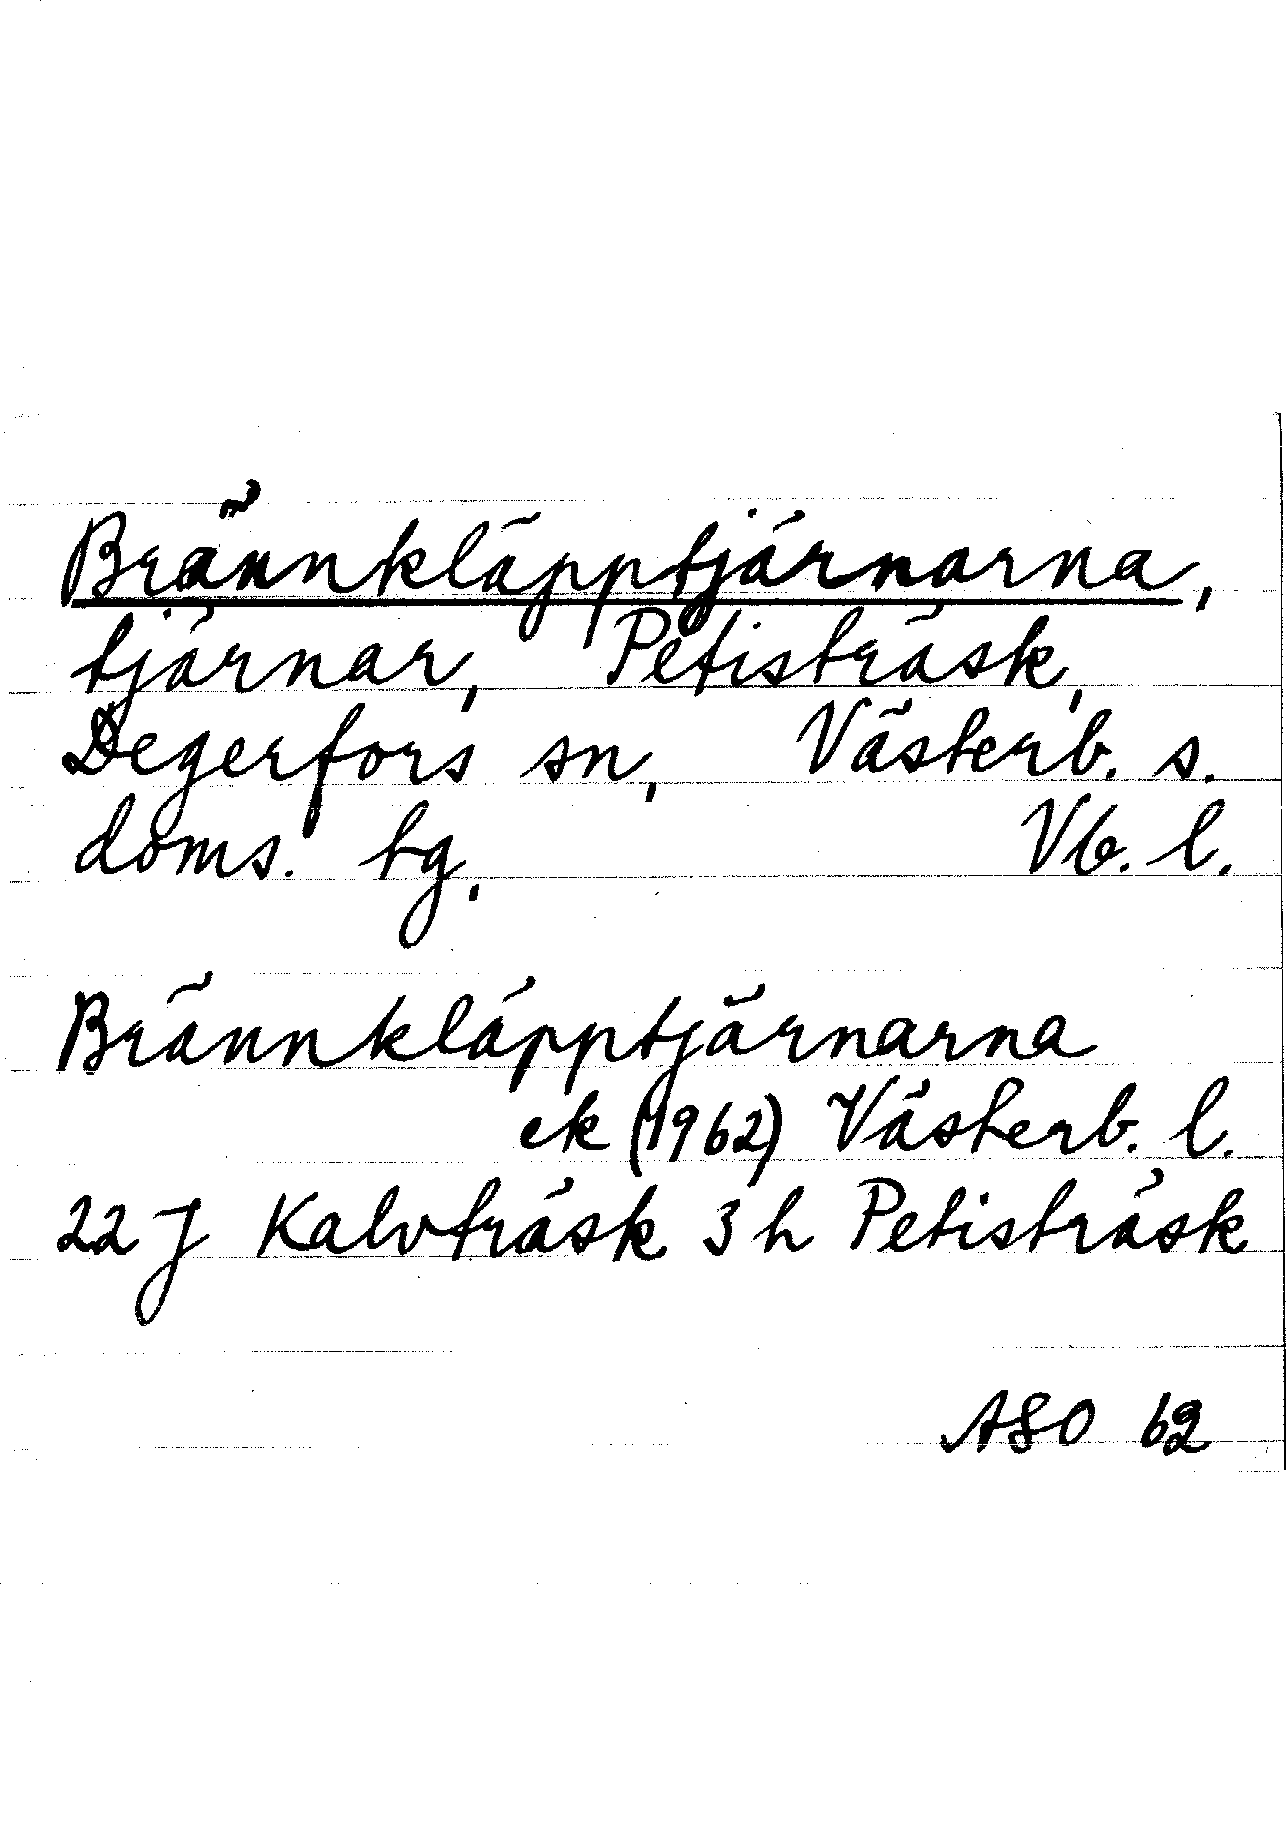 Brännkläpptjärnarna,
tjärnar, Petisträsk,
Degerfors sn, Västerb. s.
doms. tg. Vb. l.
Brännkläpptjärnarna
ek (1962) Västerb. l.
22 J Kalvträsk 3 h Petisträsk
ASO 62